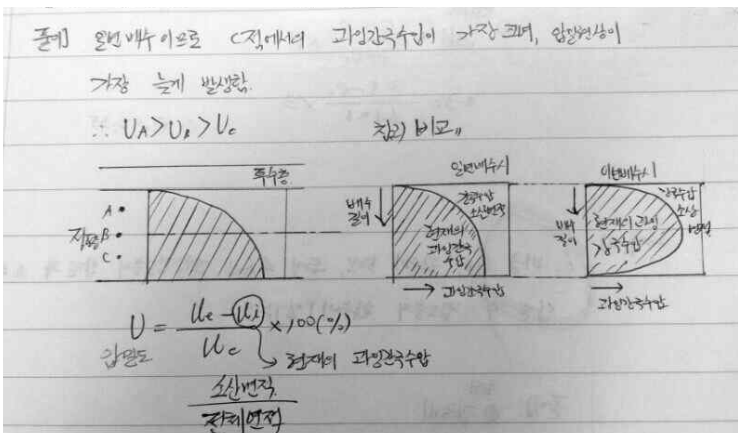 풀이] 일면배수이므로 C점에서의 과잉간극수압이 가장 크며, 압밀현상이
가장 늦게 발생함.
∴ UA>UB>UC
참고) 비교
투수층
A
점토층 B
C
일면배수시
배수
길이
간극수압
소산면적
현재의
과잉간극
수압
→ 과잉간극수압
양면배수시
배수
길이
간극수압
소산
면적
현재의 과잉
간극수압
→ 과잉간극수압
U = Ue - Ui / Ue ×100(%)
압밀도
→ 현재의 과잉간극수압
소산면적
전체면적